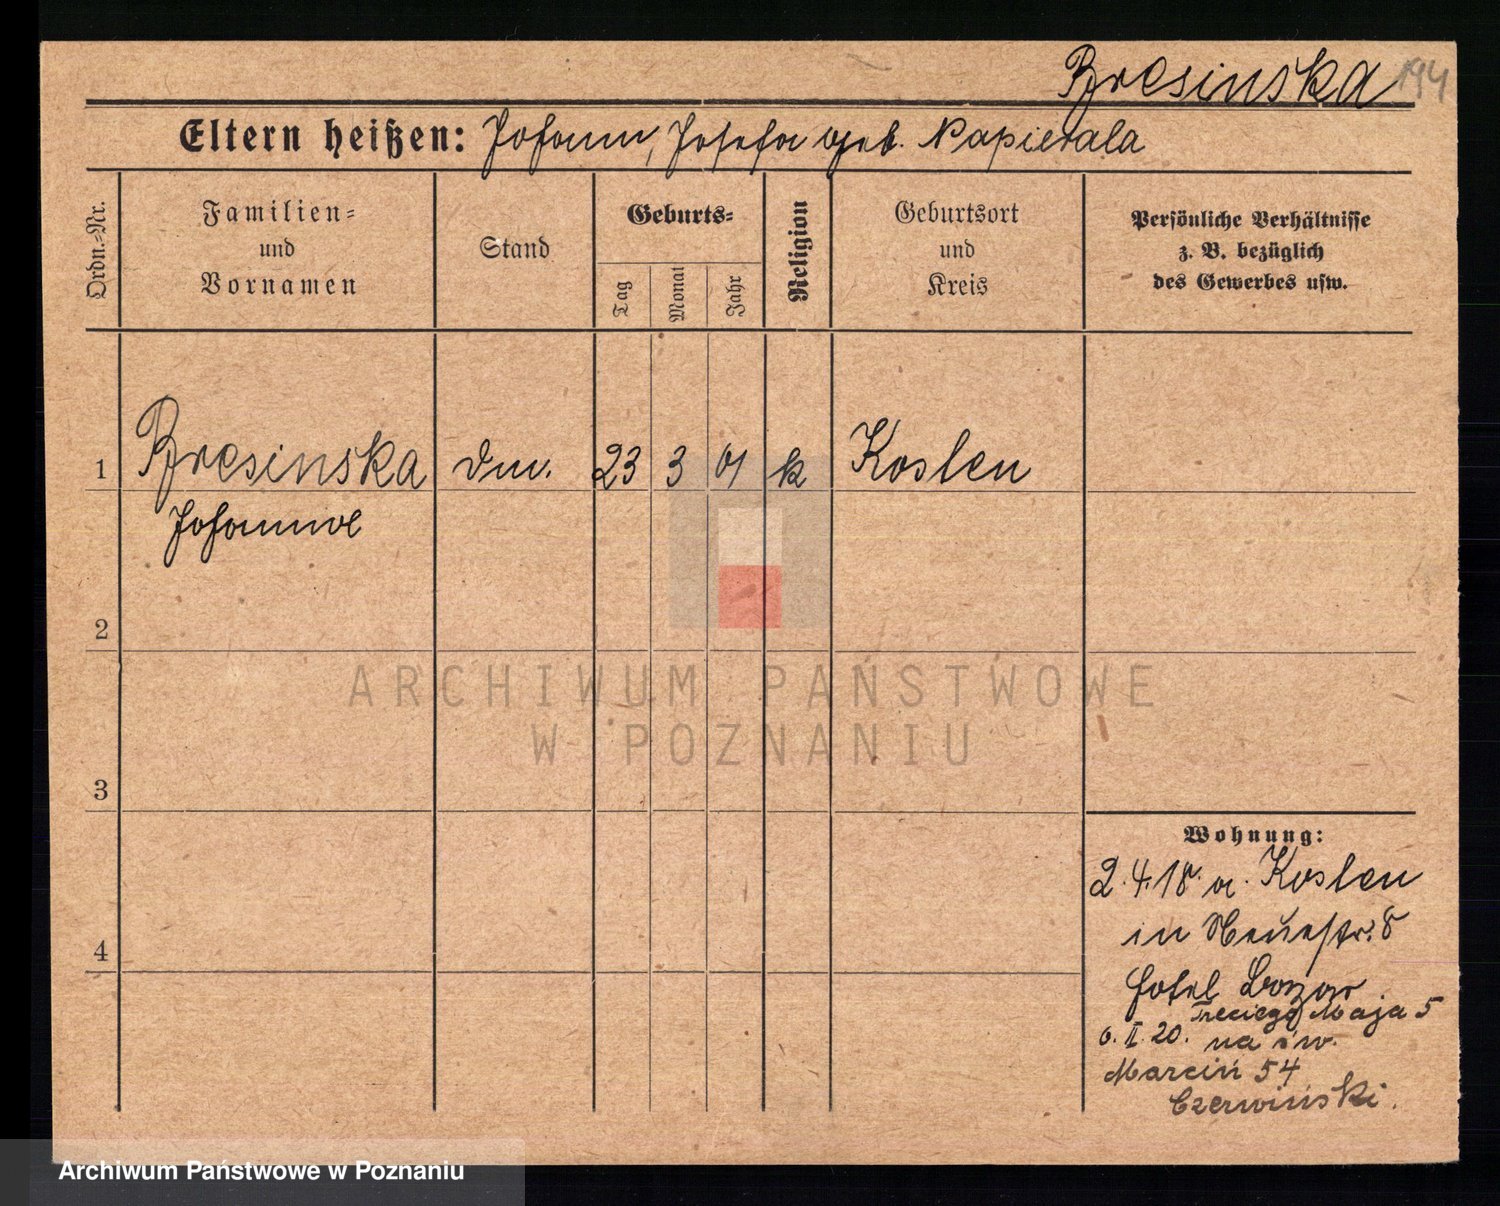 Bresinska 194
Eltern heißen: Johann, Josefa geb. Papierala
Ordn.-Nr.
Familien-
und
Vornamen
Stand
Geburts-
Tag
Monat
Jahr
Religion
Geburtsort
und
Kreis
Persönliche Verhältnisse
z. B. bezüglich
des Gewerbes usw.
1 Bresinska dm. 23 3 01 k Kosten
Johanna
2
3
4
Wohnung:
2.4.18. a. Kosten
in Neuestr. 8
Hotel Bazar
Trzeciego Maja 5
6. II. 20. na św.
Marcin 54
Czerwiński.
ARCHIWUM PAŃSTWOWE
W POZNANIU
Archiwum Państwowe w Poznaniu